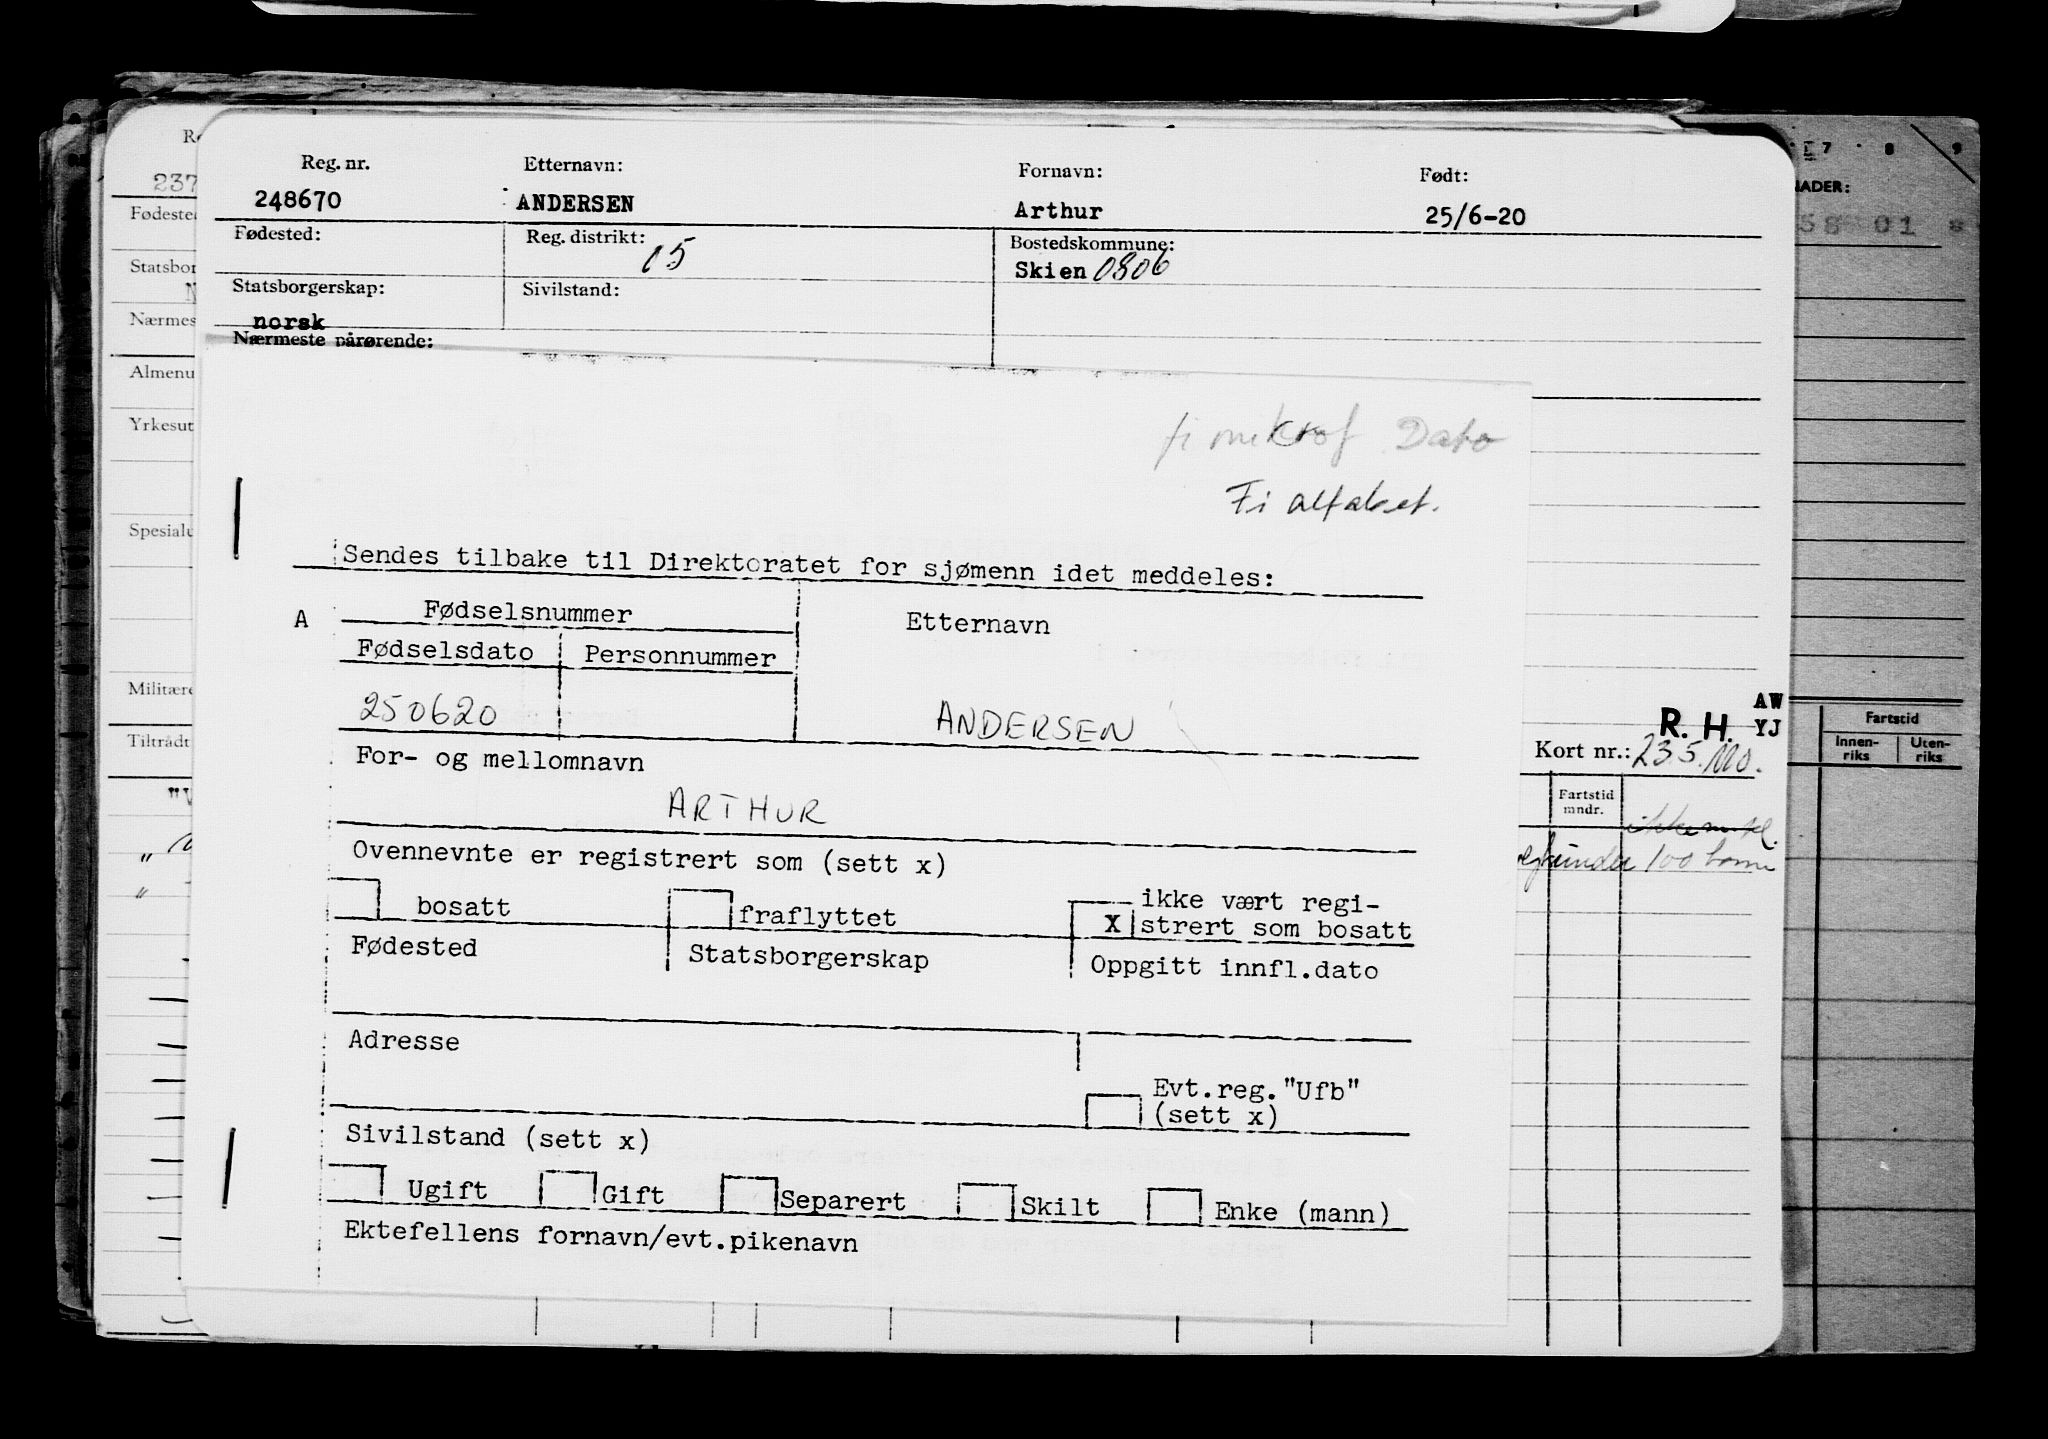 Reg. nr. Etternavn: Fornavn: Født:
248670 ANDERSEN Arthur 25/6-20
Fødested: Reg. distrikt: 15 Bostedskommune:
Skien 0806
Statsborgerskap: Sivilstand:
norsk
Nærmeste pårørende:
fi mikrof Dato
Fi alfabet.
Sendes tilbake til Direktoratet for sjømenn idet meddeles:
A Fødselsnummer Etternavn
Fødselsdato Personnummer
250620 ANDERSEN
For- og mellomnavn
ARTHUR
Ovennevnte er registrert som (sett x)
bosatt fraflyttet X ikke vært regi-
strert som bosatt
Fødested Statsborgerskap Oppgitt innfl.dato
Adresse
Evt.reg."Ufb"
(sett x)
Sivilstand (sett x)
Ugift Gift Separert Skilt Enke (mann)
Ektefellens fornavn/evt.pikenavn
R. H. AW
YJ
Kort nr.: 235.
Fartstid
mndr.
100
237
Fødeste
Statsbor
Nærmes
Almenu
Yrkesut
Spesialu
Militære
Tiltrådt
7 8 9
NADER:
58 01
Fartstid
Innen-
riks
Uten-
riks